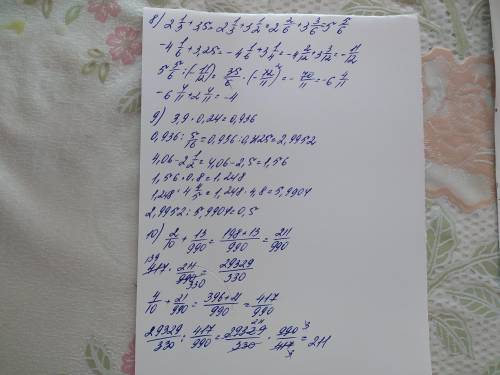 8) 2 1/3 + 3,5 = 2 1/3 + 3 1/2 = 2 2/6 + 3 3/6 = 5 5/6
-4 1/6 + 3,25 = -4 1/6 + 3 1/4 = -4 2/12 + 3 3/12 = -11/12
5 5/6 : (-11/12) = 35/6 · (-12/11) = -70/11 = -6 4/11
-6 4/11 + 2 4/11 = -4
9) 3,9 · 0,24 = 0,936
0,936 : 5/16 = 0,936 : 0,3125 = 2,9952
4,06 - 2 1/2 = 4,06 - 2,5 = 1,56
1,56 · 0,8 = 1,248
1,248 · 4 4/5 = 1,248 · 4,8 = 5,9904
2,9952 : 5,9904 = 0,5
10) 2/10 + 13/990 = 198+13/990 = 211/990
139
417 · 211/990 = 29329/330
330
4/10 + 21/990 = 396+21/990 = 417/990
29329/330 : 417/990 = 29329/330 · 990/417 = 211